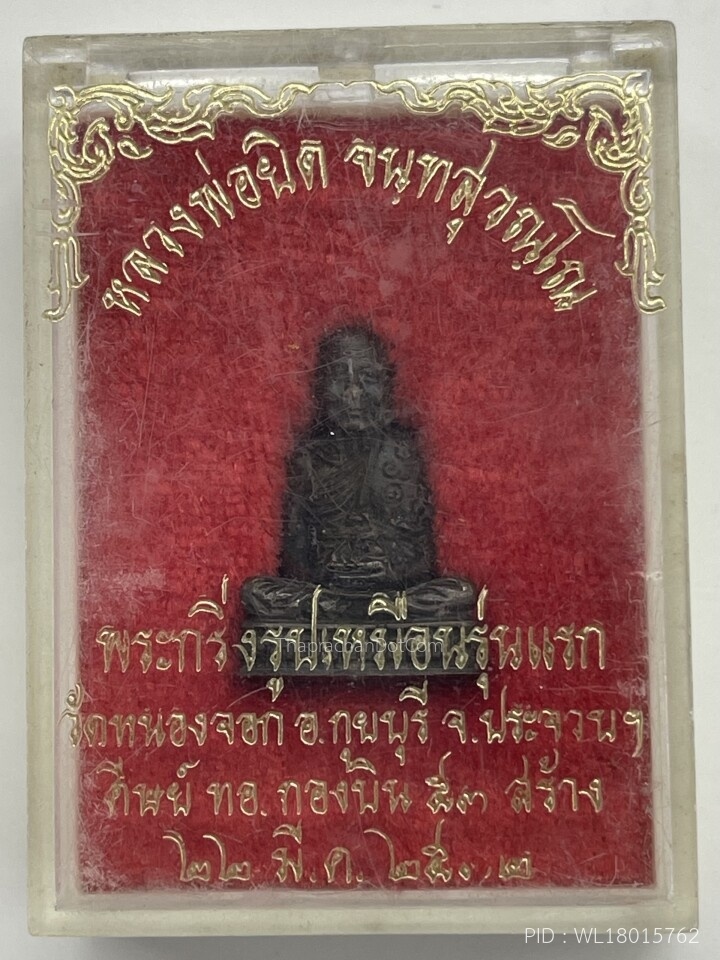 หลวงพ่อยิด จนฺทสุวณฺโณ
พระกริ่งรูปเหมือนรุ่นแรก
ThaprachanDotCom
วัดหนองจอก อ.กุยบุรี จ.ประจวบฯ
ศิษย์ ทอ. กองบิน ๕๓ สร้าง
๒๒ มี.ค. ๒๕๓๒
PID : WL18015762